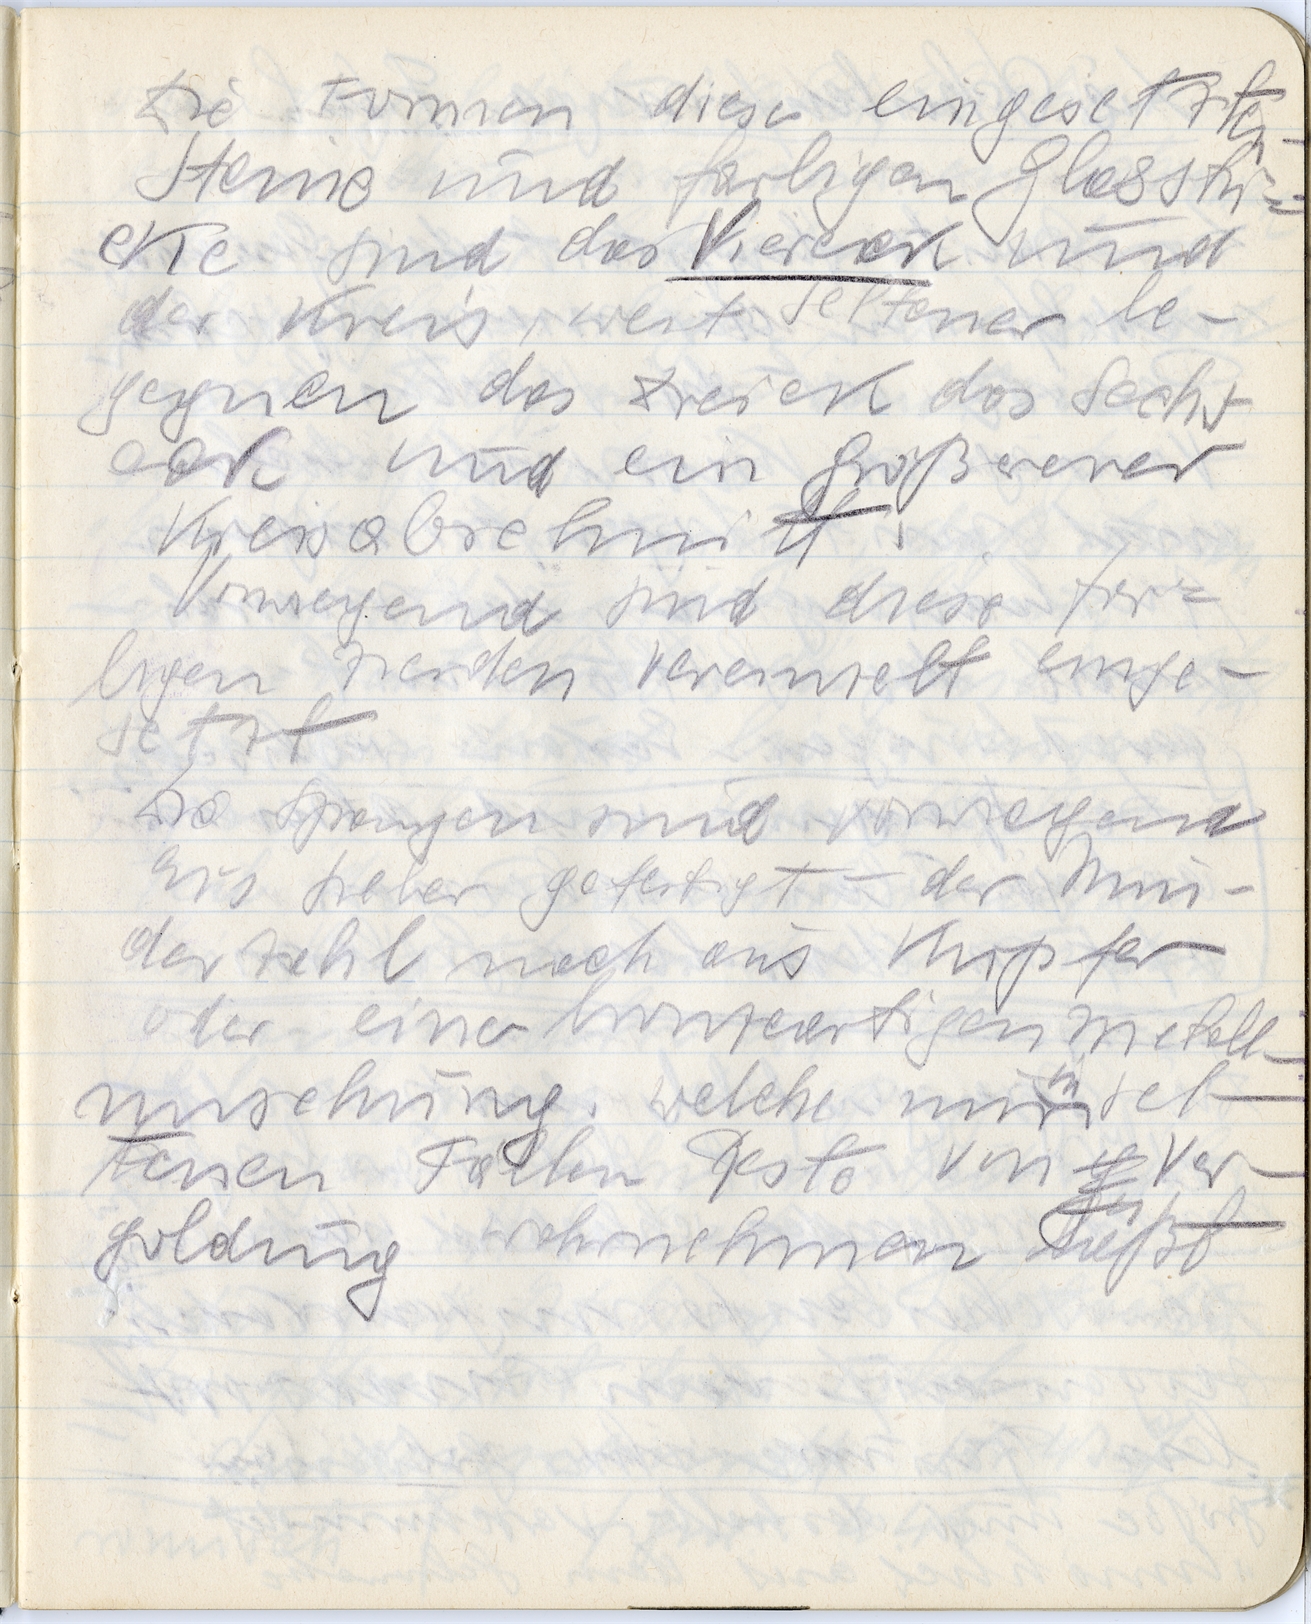 Die Formen dieser eingesetzten
Steine und farbigen Glasstü=
cke sind das Viereck und
der Kreis, weit seltener be-
gegnen das Dreieck das Sechs
eck und ein größerer
Kreisabschnitt.
Vorwiegend sind diese far=
bigen Zierden vereinzelt einge-
setzt
Die Spangen sind vorwiegend
aus Silber gefertigt – der Min-
derzahl nach aus Kupfer
oder einer bronzeartigen Metall-
mischung. welche nur in sel-
tenen Fällen Reste von Ver-
goldung wahrnehmen läßt